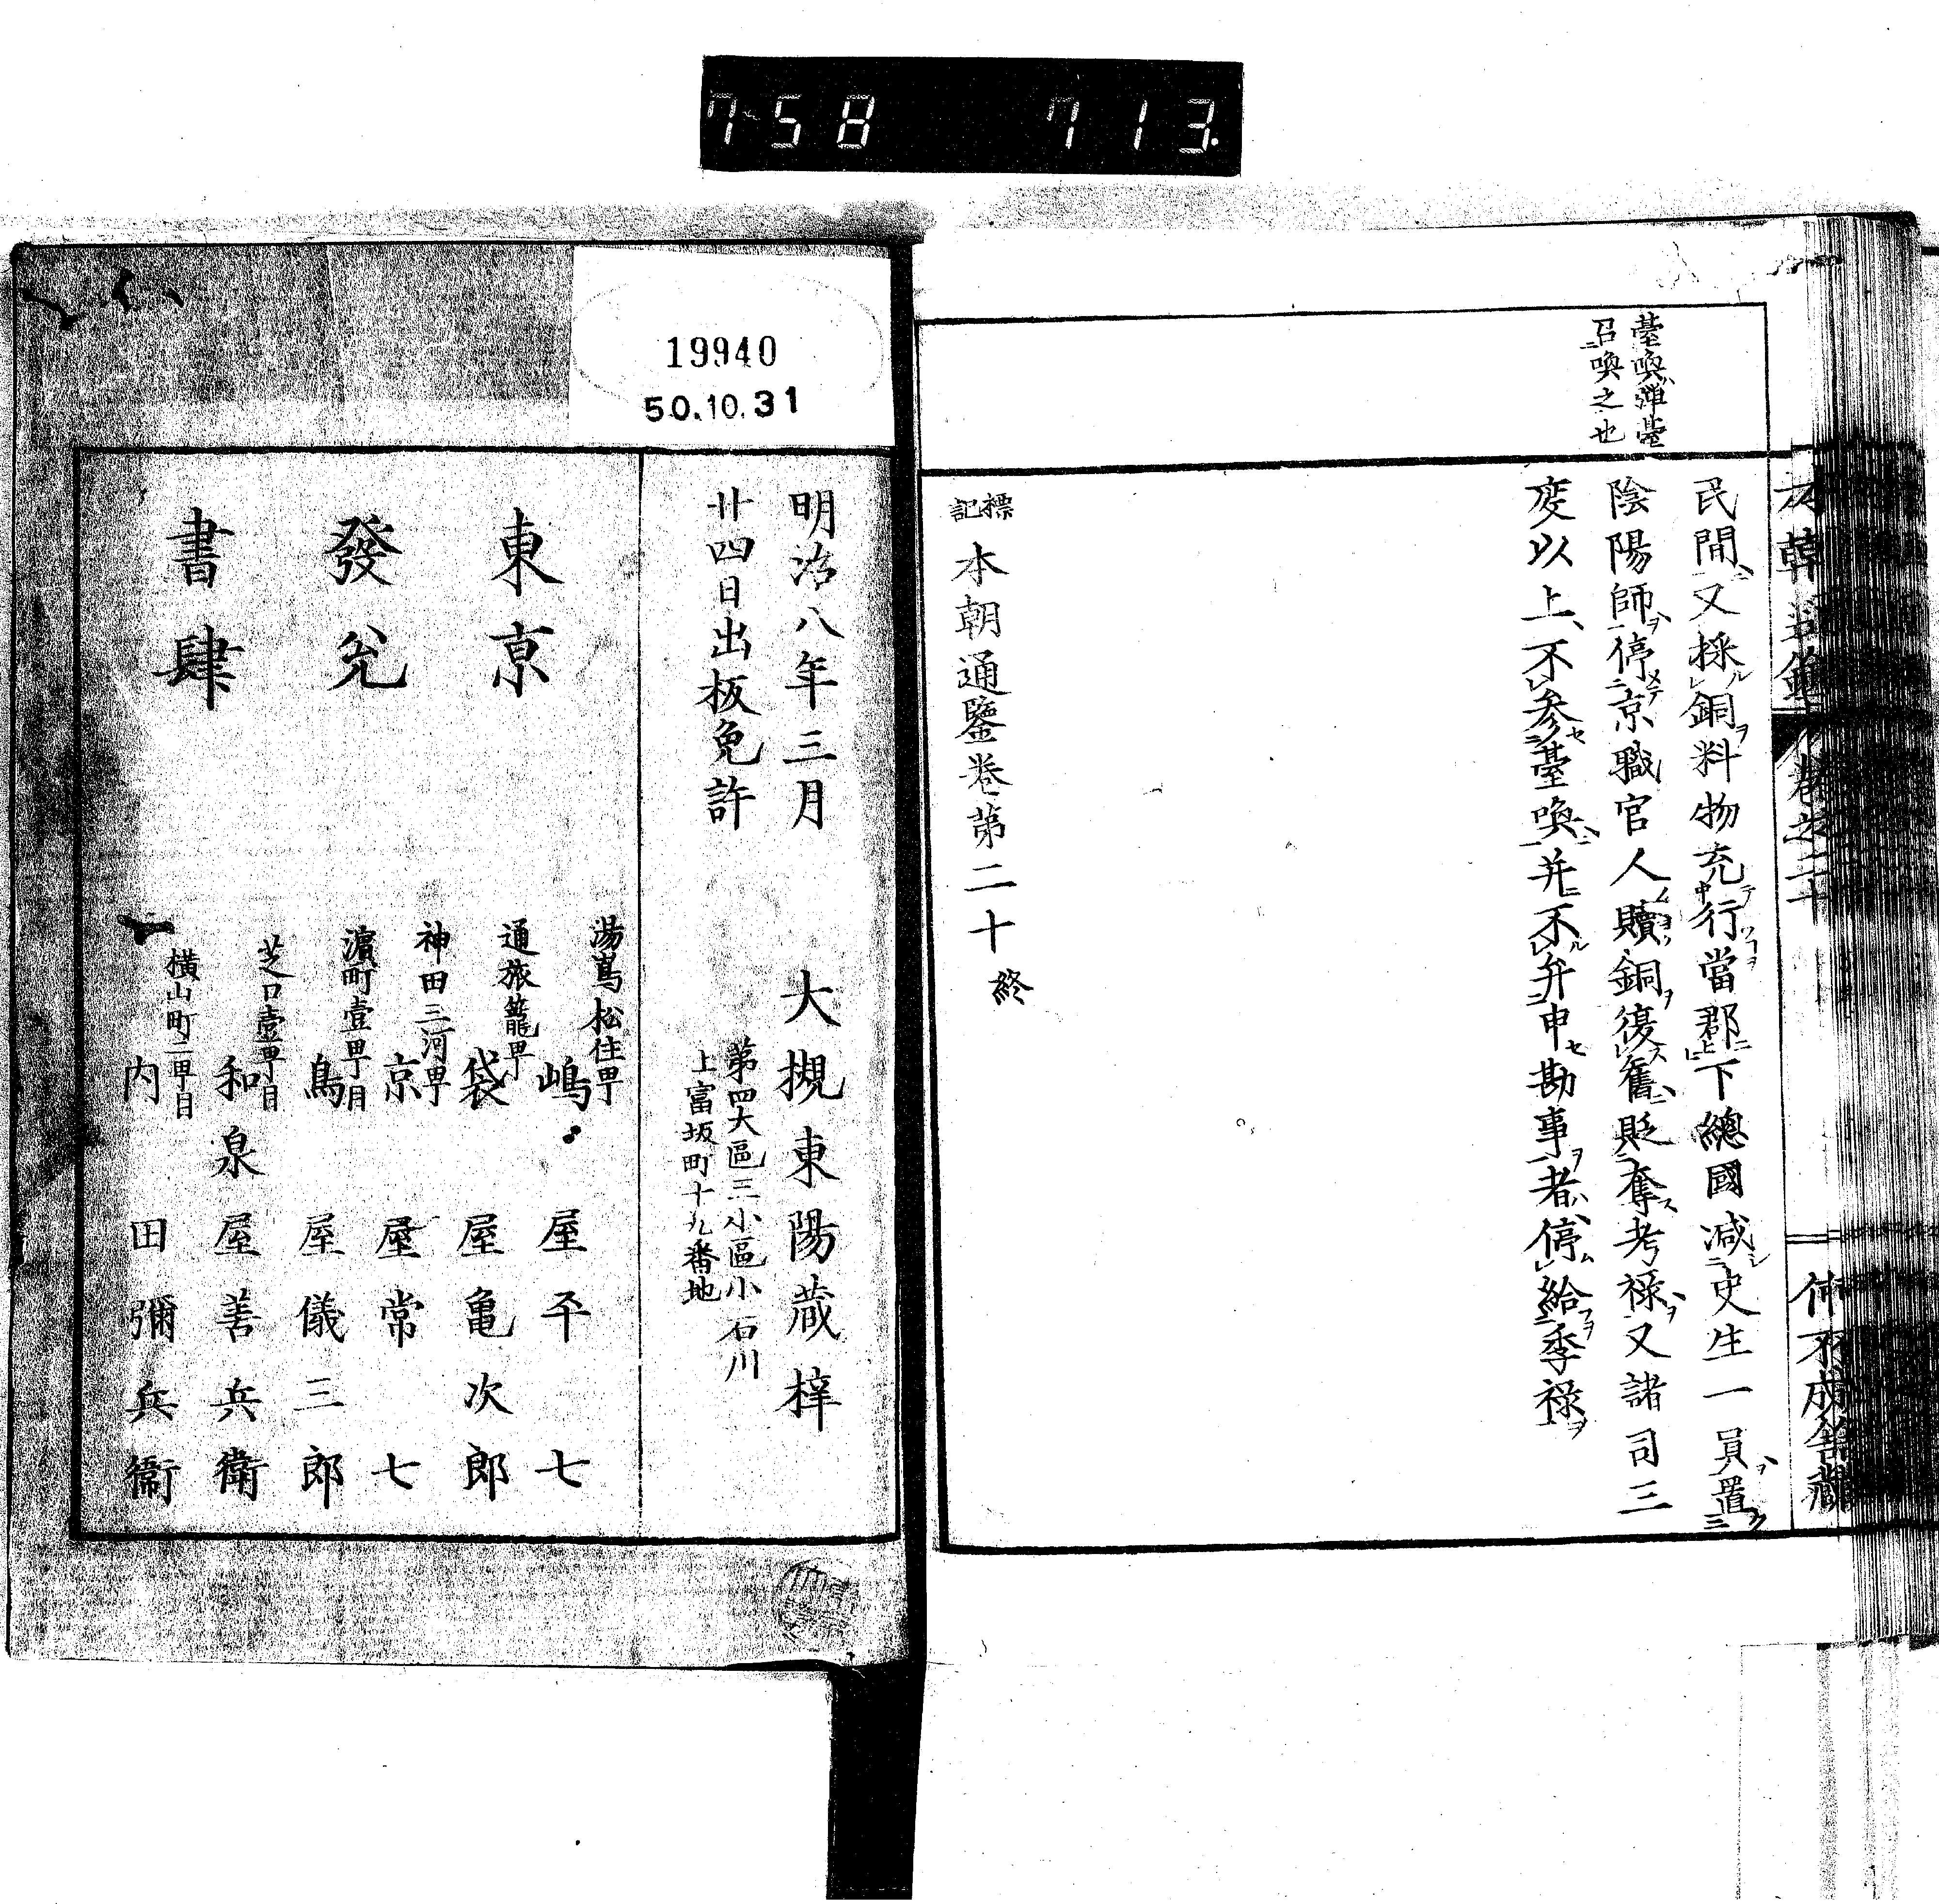 758 713.
臺喚彈臺
召喚之也
民間又採銅料物充行當郡下總國減史生一員置
陰陽師停京職官人贖銅復舊貶奪考祿又諸司三
度以上不參臺喚并不弁申勘事者停給季祿
標記 本朝通鑒卷第二十終
19940
50.10.31
明治八年三月
廿四日出板免許
大槻東陽蔵梓
第四大區三小區小石川
上富坂町十九番地
東京
發兌
書肆
湯嶌松住町
嶋屋平七
通旅籠町
袋屋亀次郎
神田三河町
京屋常七
濱町壹町目
鳥屋儀三郎
芝口壹町目
和泉屋善兵衛
横山町二町目
内田彌兵衞